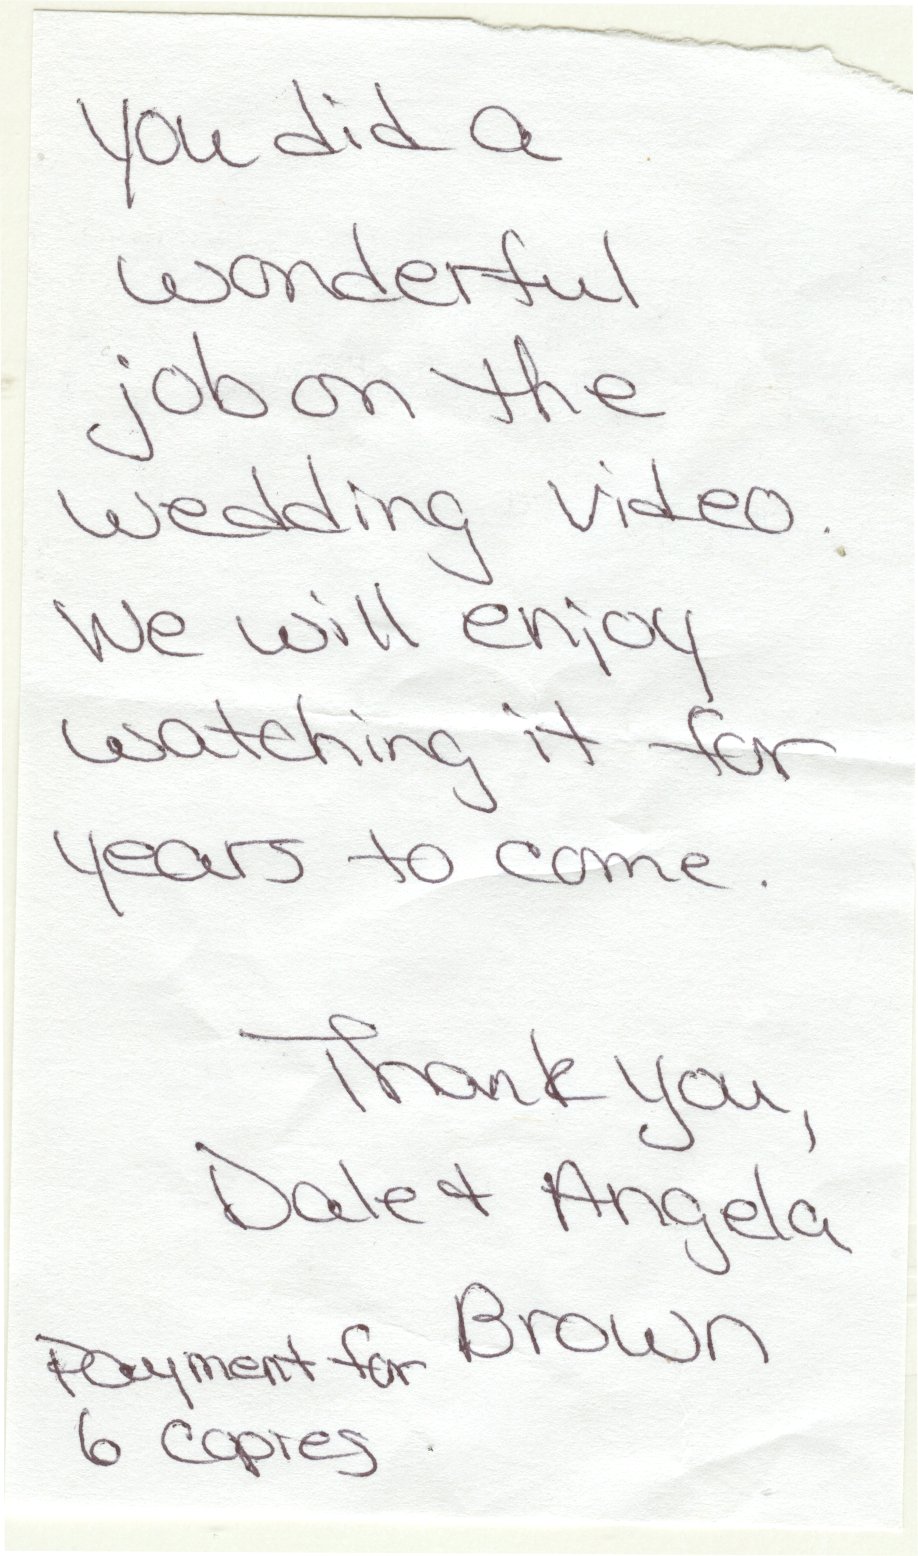 You did a
wonderful
job on the
wedding video.
We will enjoy
watching it for
years to come.
Thank you,
Dale & Angela
Brown
Payment for
6 copies